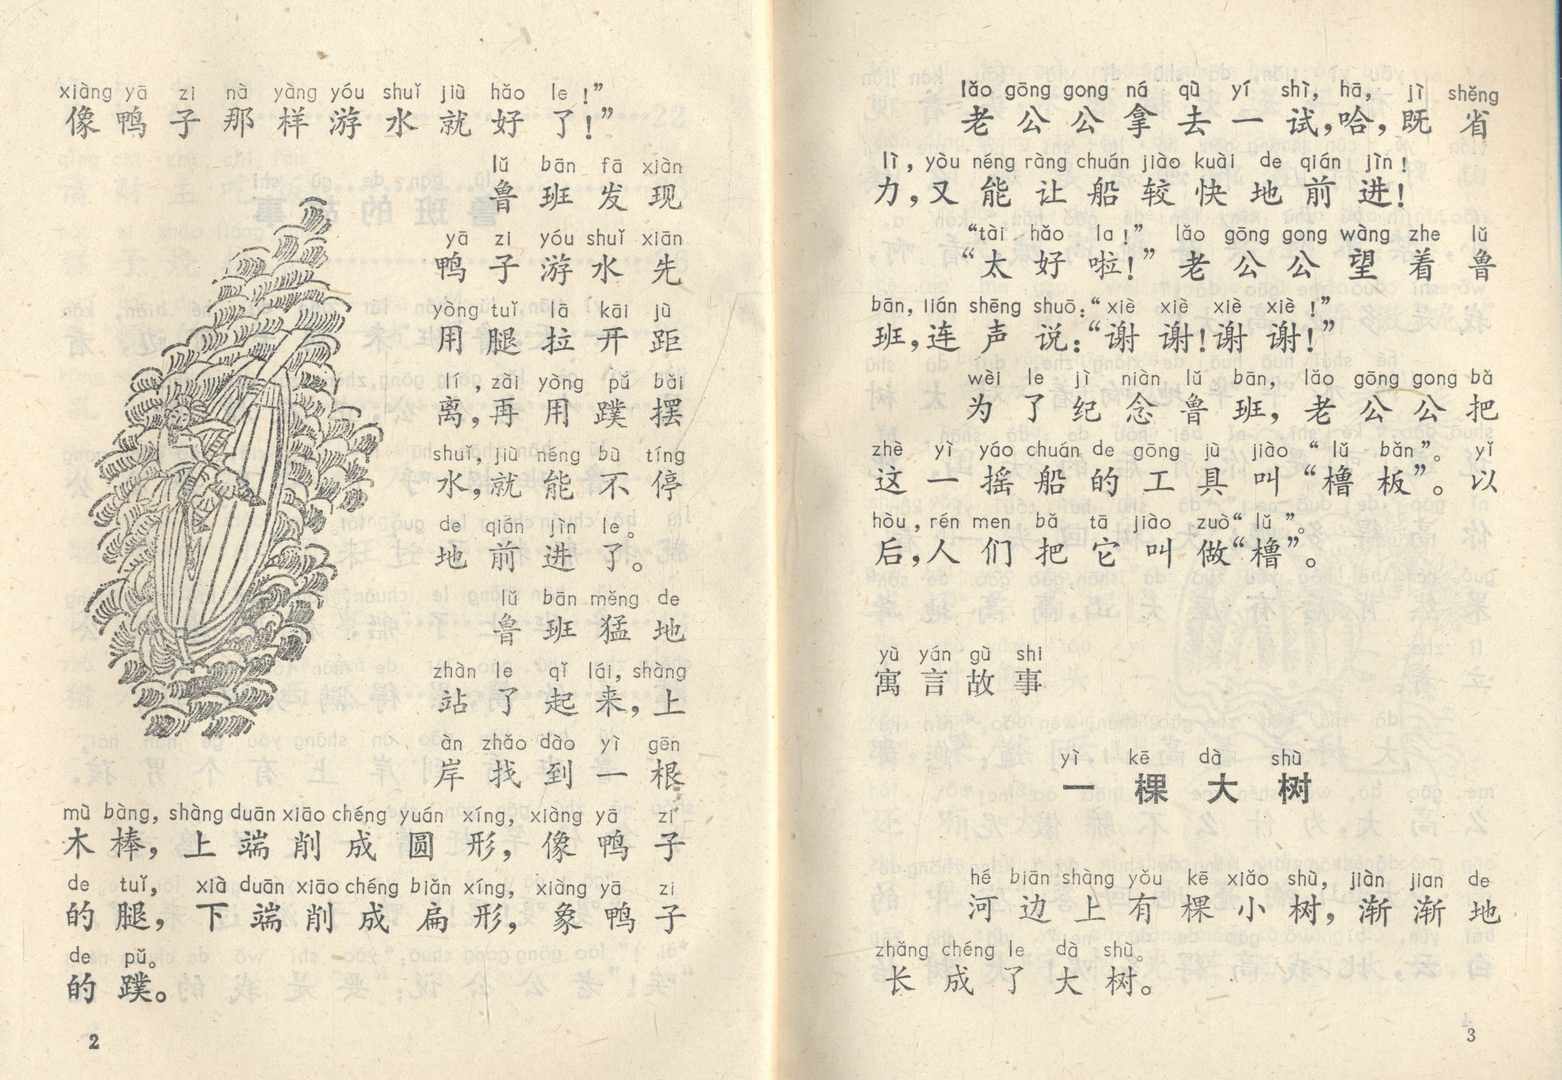 xiàng yā zi nà yàng yóu shuǐ jiù hǎo le！”
像鸭子那样游水就好了！”
lǔ bān fā xiàn
鲁班发现
yā zi yóu shuǐ xiān
鸭子游水先
yòng tuǐ lā kāi jù
用腿拉开距
lí，zài yòng pǔ bǎi
离，再用蹼摆
shuǐ，jiù néng bù tíng
水，就能不停
de qián jìn le。
地前进了。
lǔ bān měng de
鲁班猛地
zhàn le qǐ lái，shàng
站了起来，上
àn zhǎo dào yì gēn
岸找到一根
mù bàng，shàng duān xiāo chéng yuán xíng，xiàng yā zi
木棒，上端削成圆形，像鸭子
de tuǐ，xià duān xiāo chéng biǎn xíng，xiàng yā zi
的腿，下端削成扁形，象鸭子
de pǔ。
的蹼。
2
lǎo gōng gong ná qù yí shì，hā，jì shěng
老公公拿去一试，哈，既省
lì，yòu néng ràng chuán jiào kuài de qián jìn！
力，又能让船较快地前进！
“tài hǎo la！”lǎo gōng gong wàng zhe lǔ
“太好啦！”老公公望着鲁
bān，lián shēng shuō：“xiè xiè xiè xiè！”
班，连声说：“谢谢！谢谢！”
wèi le jì niàn lǔ bān，lǎo gōng gong bǎ
为了纪念鲁班，老公公把
zhè yì yáo chuán de gōng jù jiào“lǔ bǎn”。yǐ
这一摇船的工具叫“橹板”。以
hòu，rén men bǎ tā jiào zuò“lǔ”。
后，人们把它叫做“橹”。
yù yán gù shi
寓言故事
yì kē dà shù
一棵大树
hé biān shàng yǒu kē xiǎo shù，jiàn jian de
河边上有棵小树，渐渐地
zhǎng chéng le dà shù。
长成了大树。
3